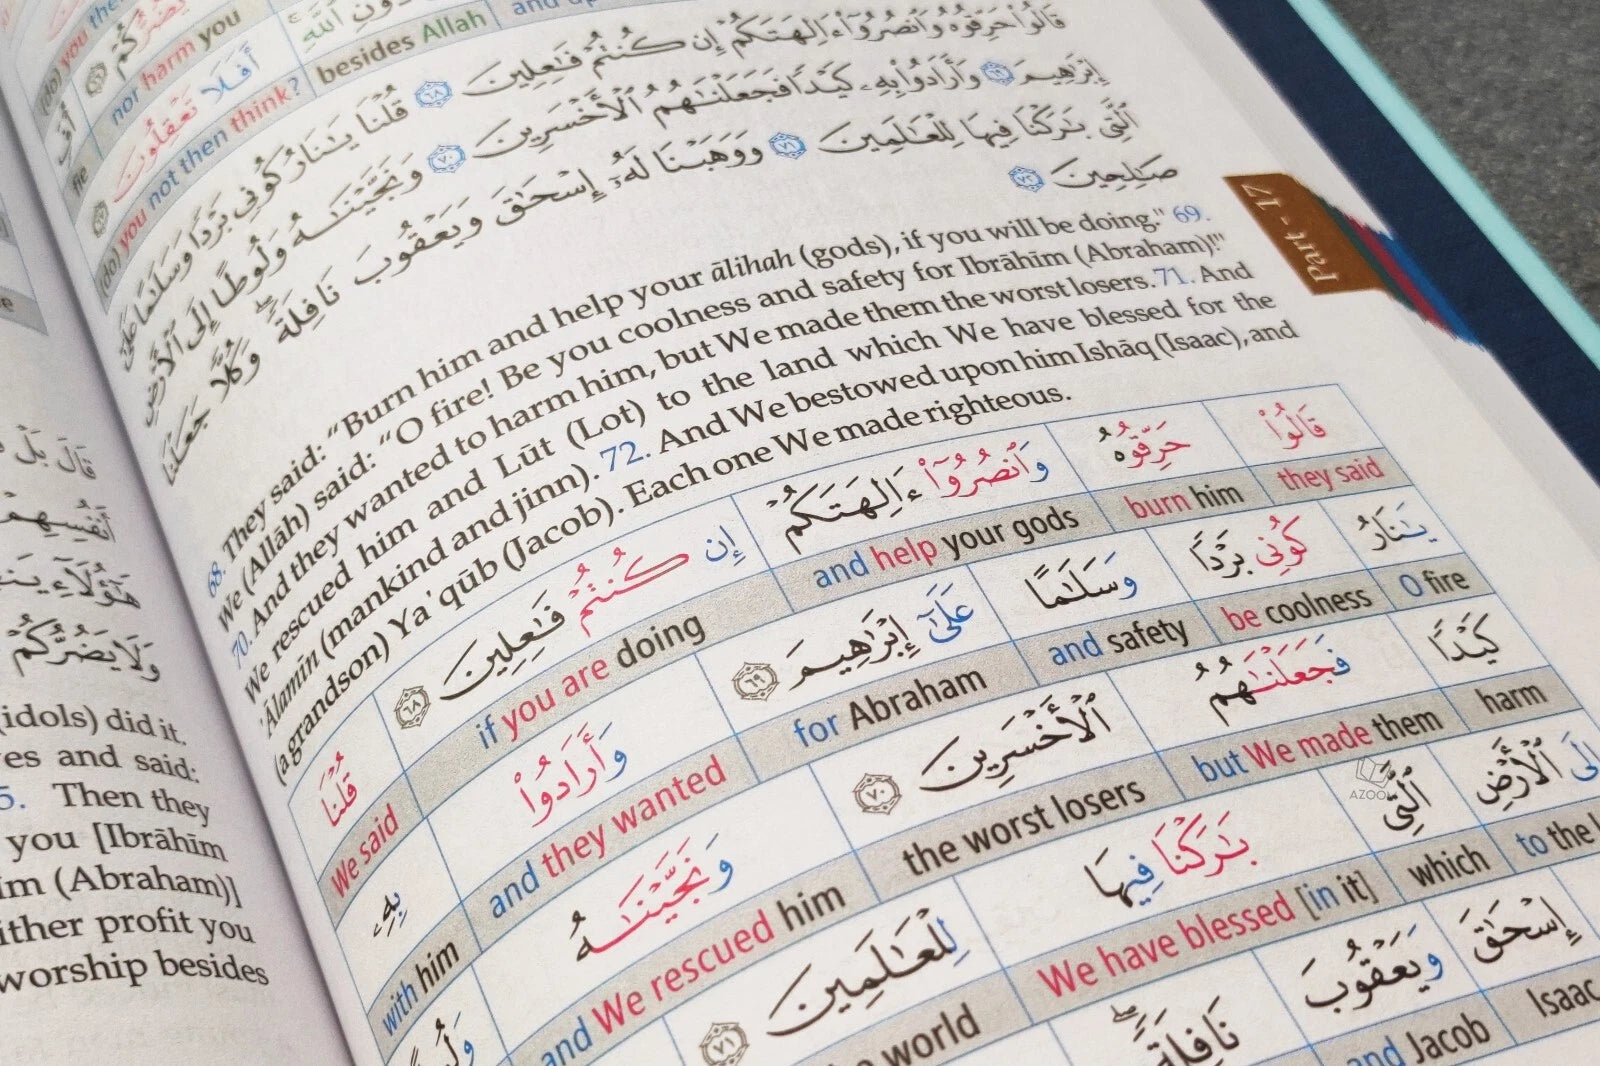 (do) you
nor harm you
besides Allah
أَفَلَا تَعْقِلُونَ
fie
(do) you not then think?
قَالُوا۟ حَرِّقُوهُ وَٱنصُرُوٓا۟ ءَالِهَتَكُمْ إِن كُنتُمْ فَـٰعِلِينَ ٦٨ قُلْنَا يَـٰنَارُ كُونِى بَرْدًا وَسَلَـٰمًا عَلَىٰٓ
إِبْرَٰهِيمَ ٦٩ وَأَرَادُوا۟ بِهِۦ كَيْدًا فَجَعَلْنَـٰهُمُ ٱلْأَخْسَرِينَ ٧٠ وَنَجَّيْنَـٰهُ وَلُوطًا إِلَى ٱلْأَرْضِ
ٱلَّتِى بَـٰرَكْنَا فِيهَا لِلْعَـٰلَمِينَ ٧١ وَوَهَبْنَا لَهُۥٓ إِسْحَـٰقَ وَيَعْقُوبَ نَافِلَةً ۖ وَكُلًّا جَعَلْنَا
صَـٰلِحِينَ ٧٢
Part - 17
68. They said: "Burn him and help your ālihah (gods), if you will be doing." 69.
We (Allāh) said: "O fire! Be you coolness and safety for Ibrāhīm (Abraham)!"
70. And they wanted to harm him, but We made them the worst losers. 71. And
We rescued him and Lūt (Lot) to the land which We have blessed for the
'Ālamīn (mankind and jinn). 72. And We bestowed upon him Ishāq (Isaac), and
(a grandson) Ya'qūb (Jacob). Each one We made righteous.
قَالُوا۟ حَرِّقُوهُ وَٱنصُرُوٓا۟ ءَالِهَتَكُمْ إِن كُنتُمْ فَـٰعِلِينَ ٦٨
they said burn him and help your gods if you are doing
قُلْنَا يَـٰنَارُ كُونِى بَرْدًا وَسَلَـٰمًا عَلَىٰٓ إِبْرَٰهِيمَ ٦٩ وَأَرَادُوا۟
We said O fire be coolness and safety for Abraham and they wanted
بِهِۦ كَيْدًا فَجَعَلْنَـٰهُمُ ٱلْأَخْسَرِينَ ٧٠ وَنَجَّيْنَـٰهُ
with him harm but We made them the worst losers and We rescued him
إِلَى ٱلْأَرْضِ ٱلَّتِى بَـٰرَكْنَا فِيهَا لِلْعَـٰلَمِينَ ٧١
to the which We have blessed [in it] world
إِسْحَـٰقَ وَيَعْقُوبَ نَافِلَةً ۖ
Isaac and Jacob
قَالَ بَلْ
أَنفُسِهِمْ
هَـٰٓؤُلَآءِ
وَلَا يَضُرُّكُمْ
(idols) did it.
and said:
5. Then they
you [Ibrāhīm
(Abraham)]
profit you
worship besides